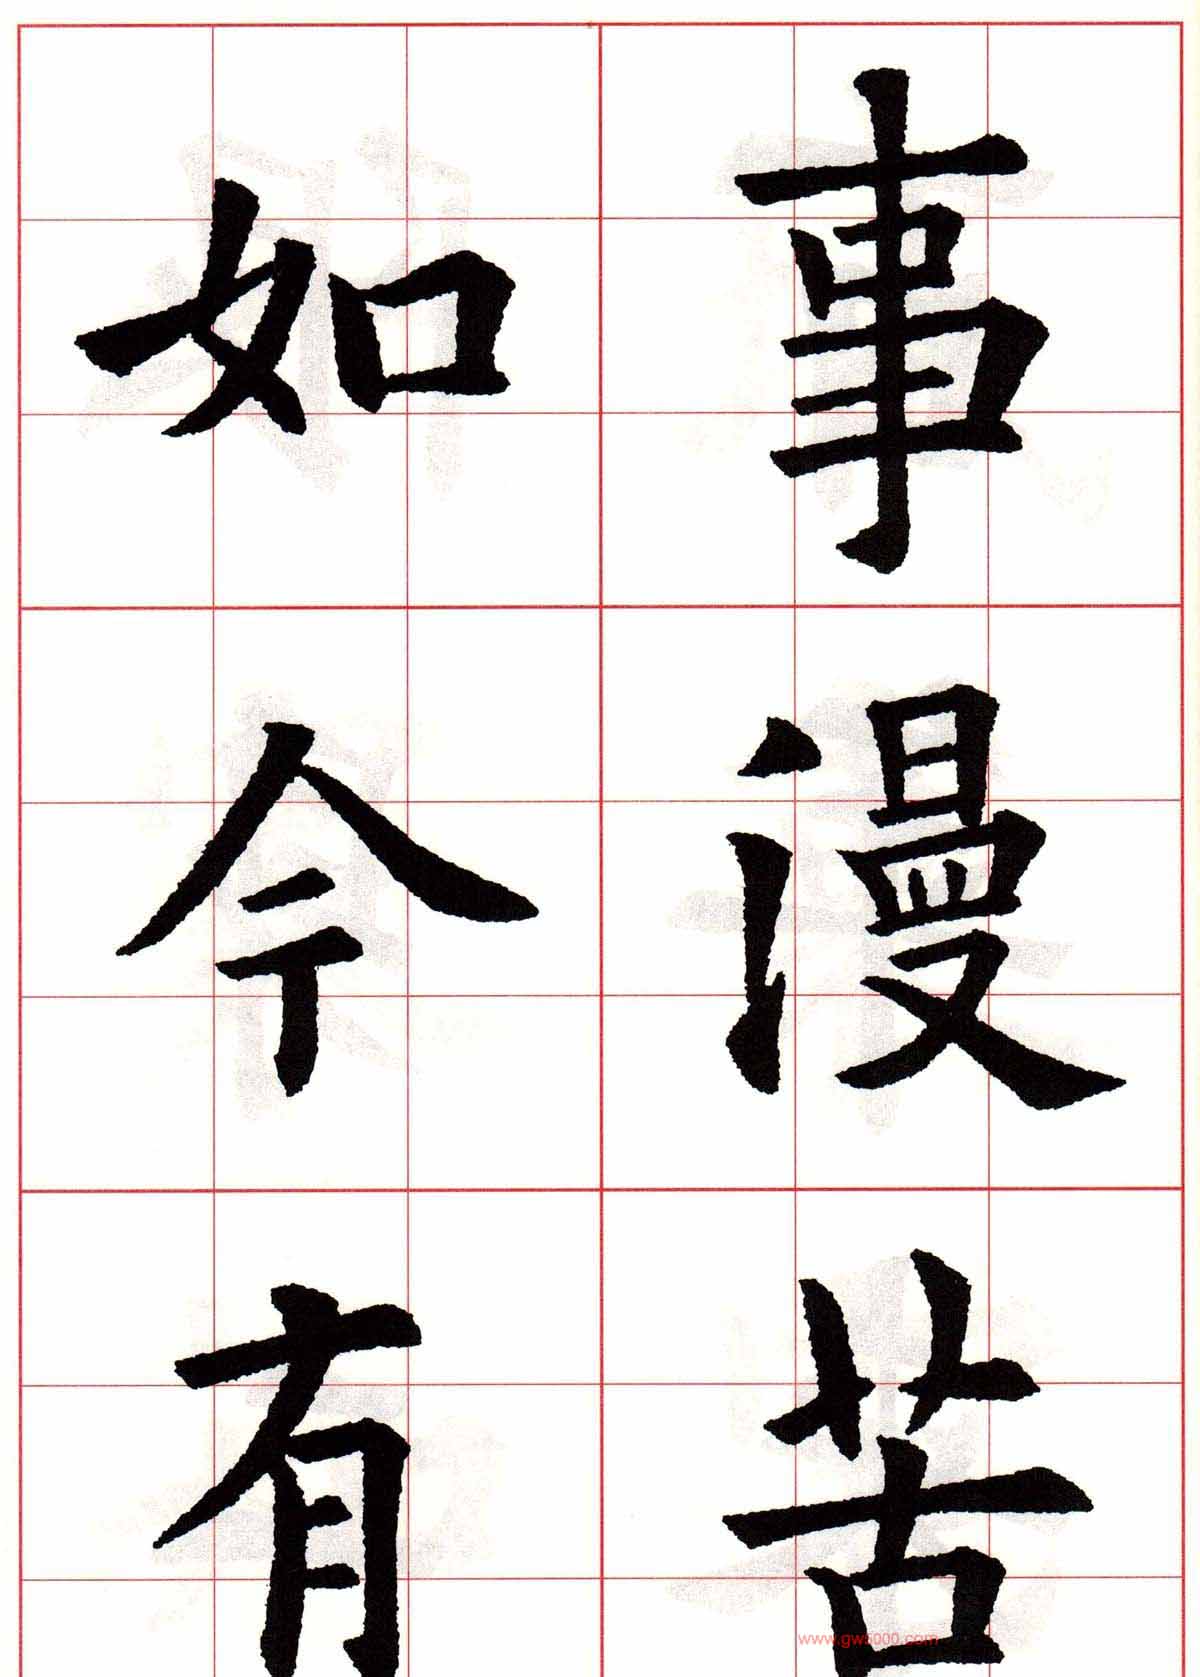 事漫苦
如今有
www.gw5000.com